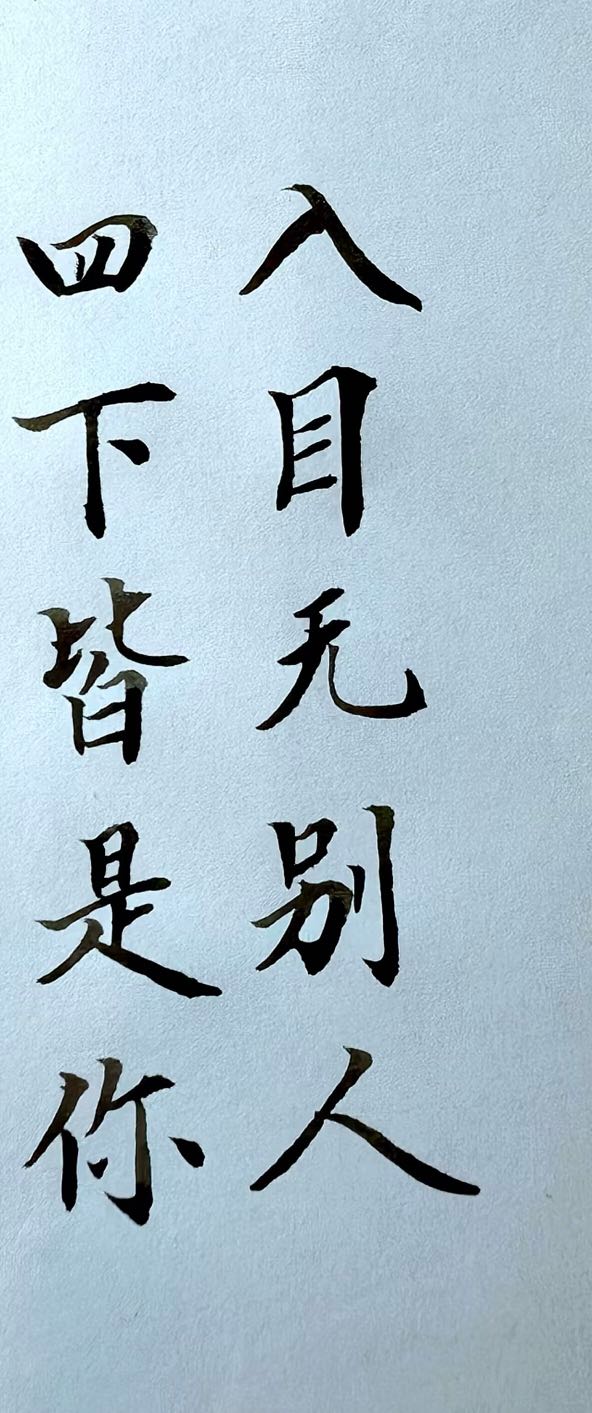 入目无别人
四下皆是你